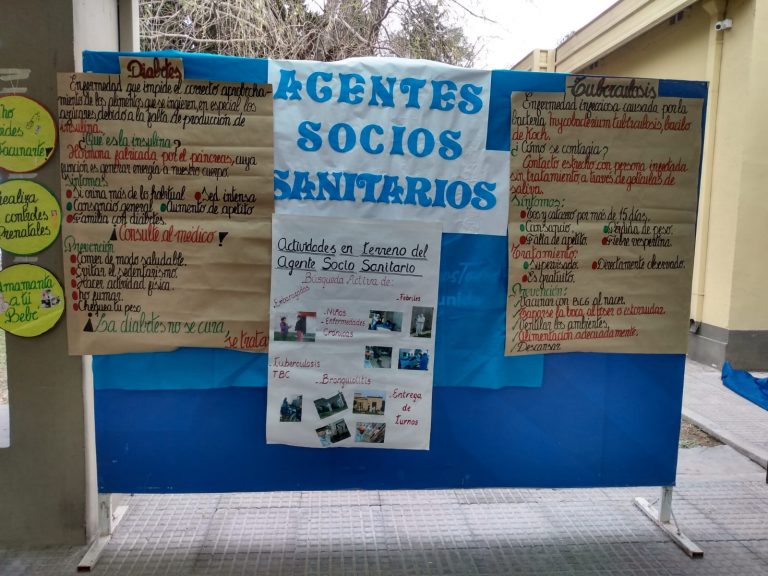 no
vides
Vacunarte
Realiza
controles
Prenatales
Amamanta
a tu
Bebé
Diabetes
Enfermedad que impide el correcto aprovecha-
miento de los alimentos que se ingieren en especial los
azúcares debido a la falta de producción de
insulina.
¿Que es la insulina?
Hormona fabricada por el páncreas, cuya
función es generar energía a nuestro cuerpo.
Síntomas:
Se orina más de lo habitual Sed intensa
Cansancio general Aumento de apetito
Familia con diabetes.
Consulte al médico!
Prevención
Comer de modo saludable.
Evitar el sedentarismo.
Hacer actividad física.
no fumar.
Chequea tu peso.
La diabetes no se cura,
Se trata
AGENTES
SOCIOS
SANITARIOS
Actividades en Terreno del
Agente Socio Sanitario
Búsqueda Activa de:
Embarazadas
- Niños
- Enfermedades
Crónicas
- Febriles
Tuberculosis
TBC
- Bronquiolitis
- Entrega
de
Turnos
Tuberculosis
Enfermedad infecciosa causada por la
bacteria Mycobacterium tubtrculosis, bacilo
de Koch.
¿Cómo se contagia?
Contacto estrecho con persona infectada
sin tratamiento, a través de goticulas de
saliva.
Síntomas:
Tos y catarro por más de 15 días.
Cansancio. Pérdida de peso.
Falta de apetito. Fiebre vespertina.
Tratamiento:
Supervisado. Directamente observado.
Es gratuito.
Prevención:
Vacunar con BCG al nacer.
Taparse la boca al toser o estornudar.
Ventilar los ambientes.
Alimentación adecuadamente.
Descansar